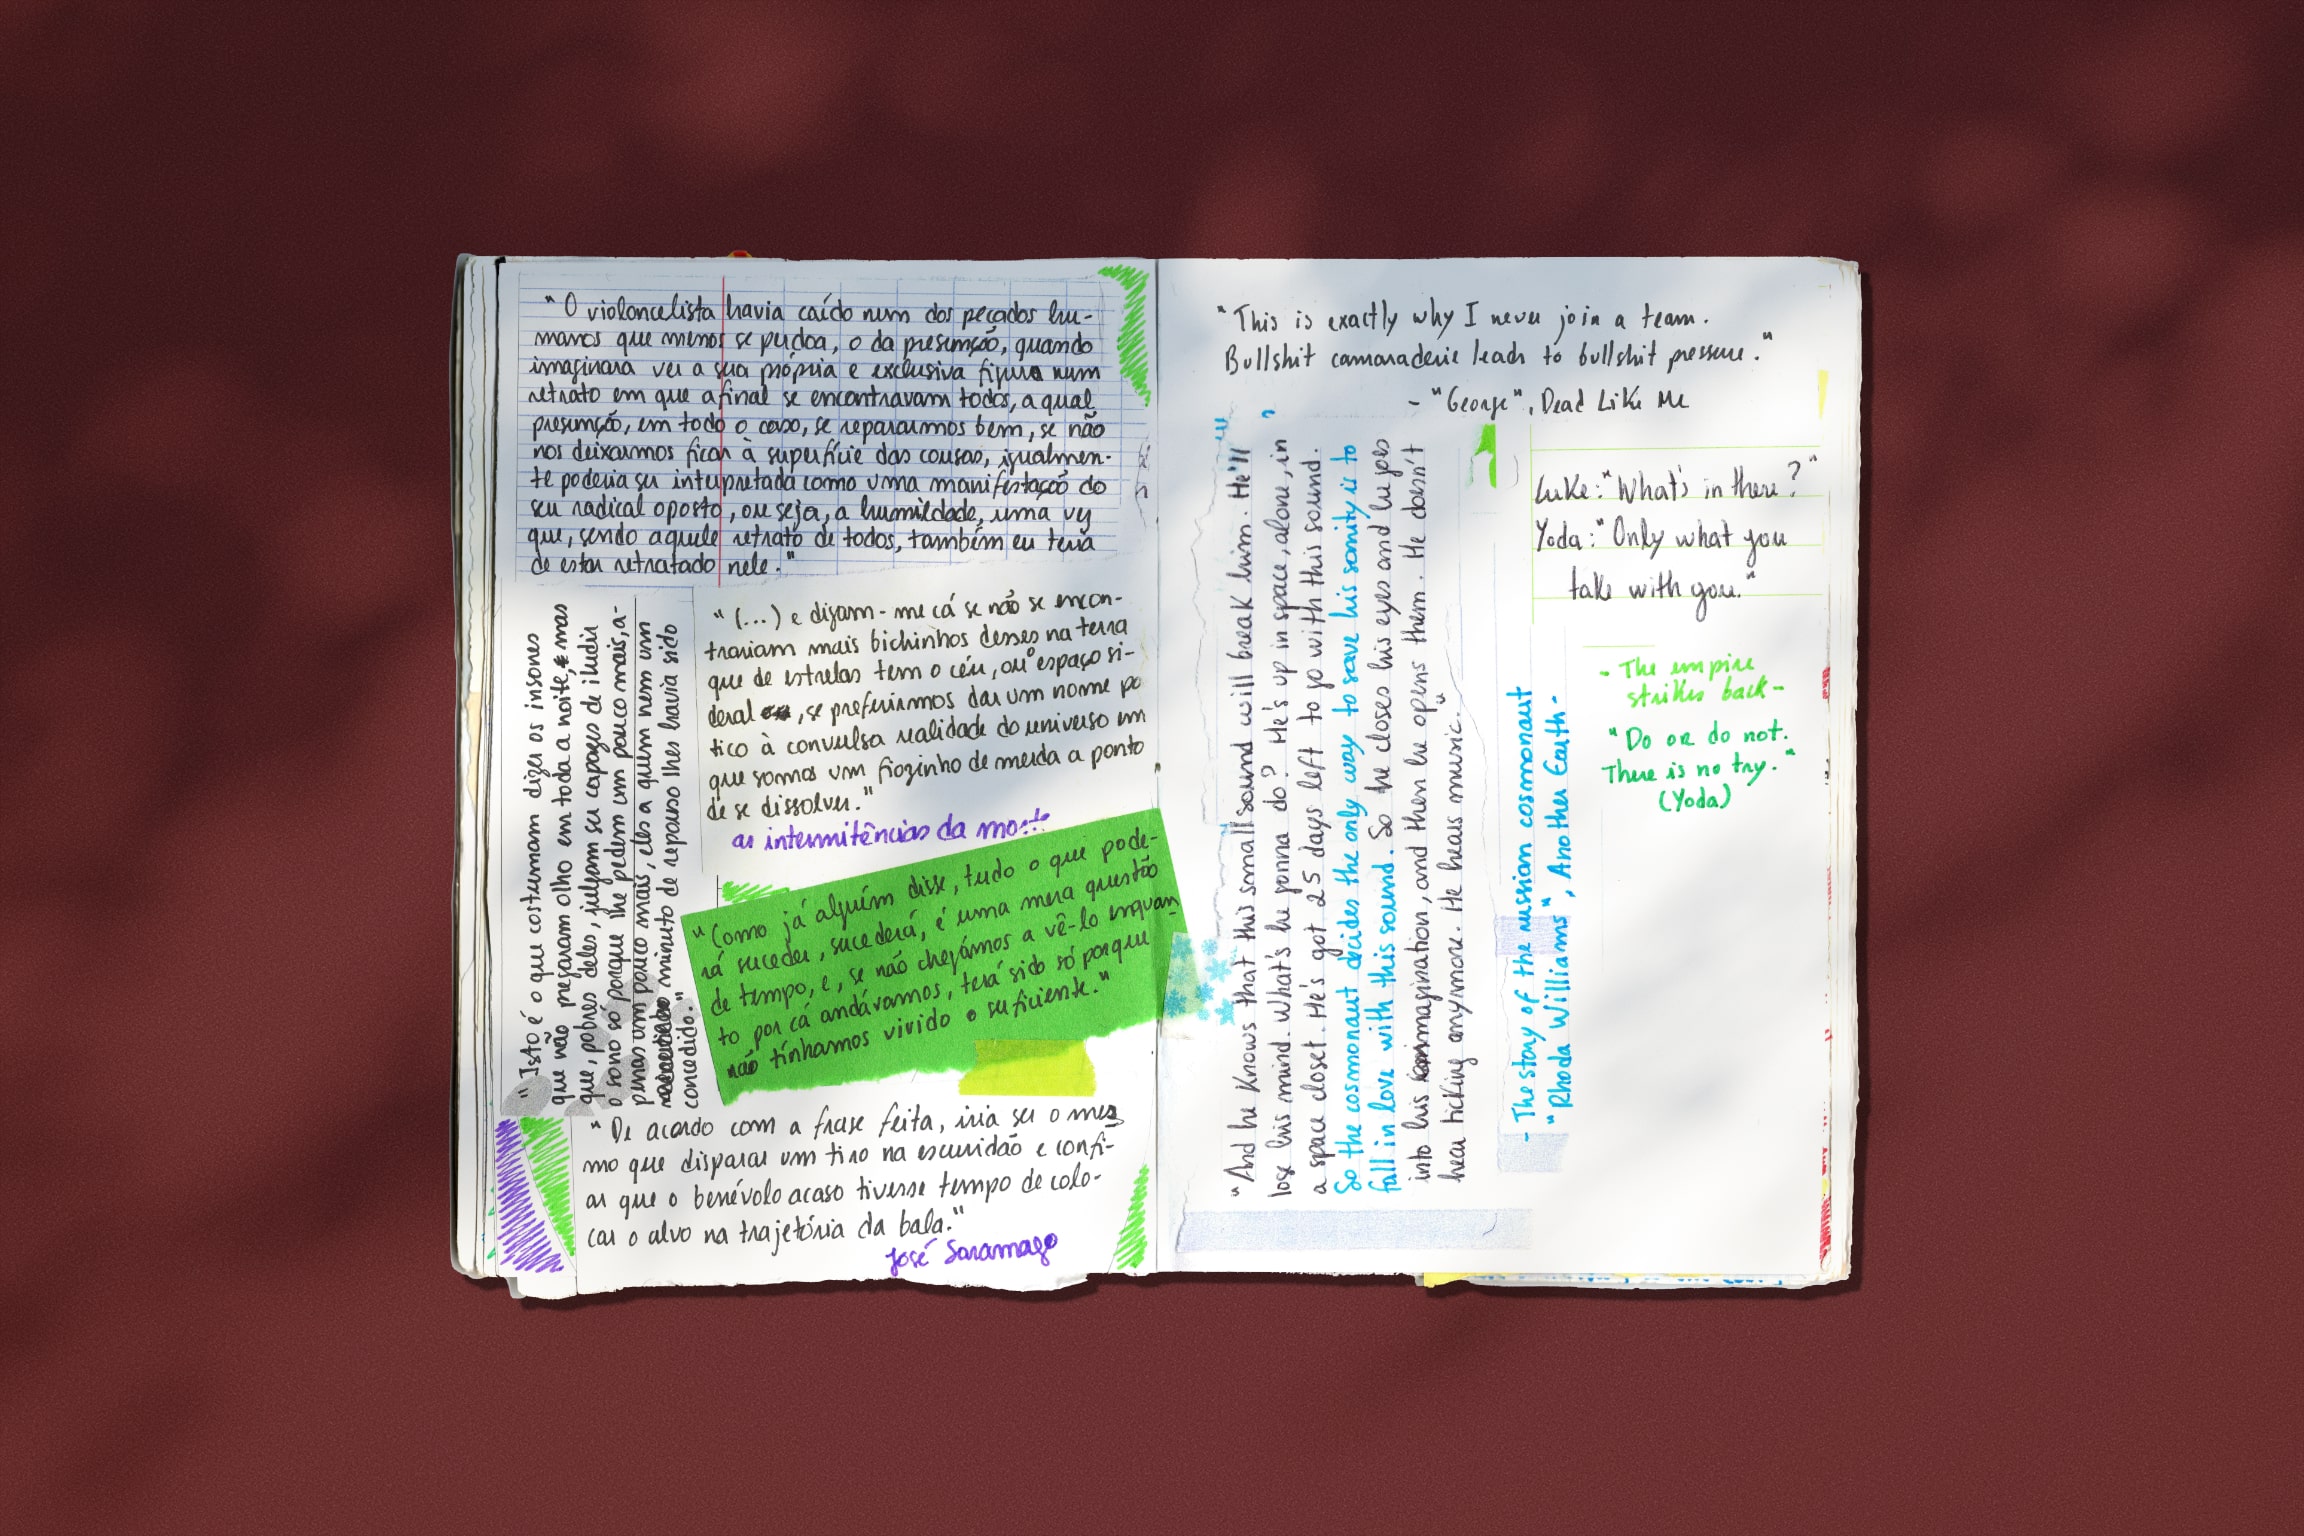 "O violoncelista havia caído num dos pecados hu-
manos que menos se perdoa, o da presunção, quando
imaginara ver a sua própria e exclusiva figura num
retrato em que afinal se encontravam todos, a qual
presunção, em todo o caso, se repararmos bem, se não
nos deixarmos ficar à superfície das cousas, igualmen-
te poderia ser interpretada como uma manifestação do
seu radical oposto, ou seja, a humildade, uma vez
que, sendo aquele retrato de todos, também eu teria
de estar retratado nele."
"Isto é o que costumam dizer os insones
que não pregaram olho em toda a noite, mas
que, pobres deles, julgam ser capazes de iludir
o sono só porque lhe pedem um pouco mais, a-
penas um pouco mais, eles a quem nem um
minuto de repouso lhes havia sido
concedido."
"(...) e digam-me cá se não se encon-
trariam mais bichinhos desses na terra
que de estrelas tem o céu, ou o espaço si-
deral, se preferirmos dar um nome poé
tico à convulsa realidade do universo em
que somos um fiozinho de merda a ponto
de se dissolver."
as intermitências da morte
"Como já alguém disse, tudo o que pode-
rá suceder, sucederá, é uma mera questão
de tempo, e, se não chegámos a vê-lo enquan-
to por cá andávamos, terá sido só porque
não tínhamos vivido o suficiente."
"De acordo com a frase feita, iria ser o mes
mo que disparar um tiro na escuridão e confi-
ar que o benévolo acaso tivesse tempo de colo-
car o alvo na trajetória da bala."
José Saramago
"This is exactly why I never join a team.
Bullshit camaraderie leads to bullshit pressure."
- "George", Dead Like Me
"And he knows that this small sound will break him. He'll
lose his mind. What's he gonna do? He's up in space, alone, in
a space closet. He's got 25 days left to go with this sound.
So the cosmonaut decides the only way to save his sanity is to
fall in love with this sound. So he closes his eyes and he goes
into his imagination, and then he opens them. He doesn't
hear ticking anymore. He hears music."
- The story of the russian cosmonaut
"Rhoda Williams", Another Earth -
Luke: "What's in there?"
Yoda: "Only what you
take with you."
- The empire
strikes back -
"Do or do not.
There is no try."
(Yoda)